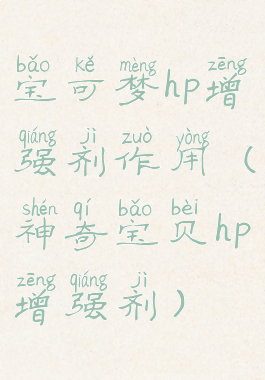 bǎo kě mèng zēng
宝可梦hp增
qiáng jì zuò yòng
强剂作用（
shén qí bǎo bèi
神奇宝贝hp
zēng qiáng jì
增强剂）